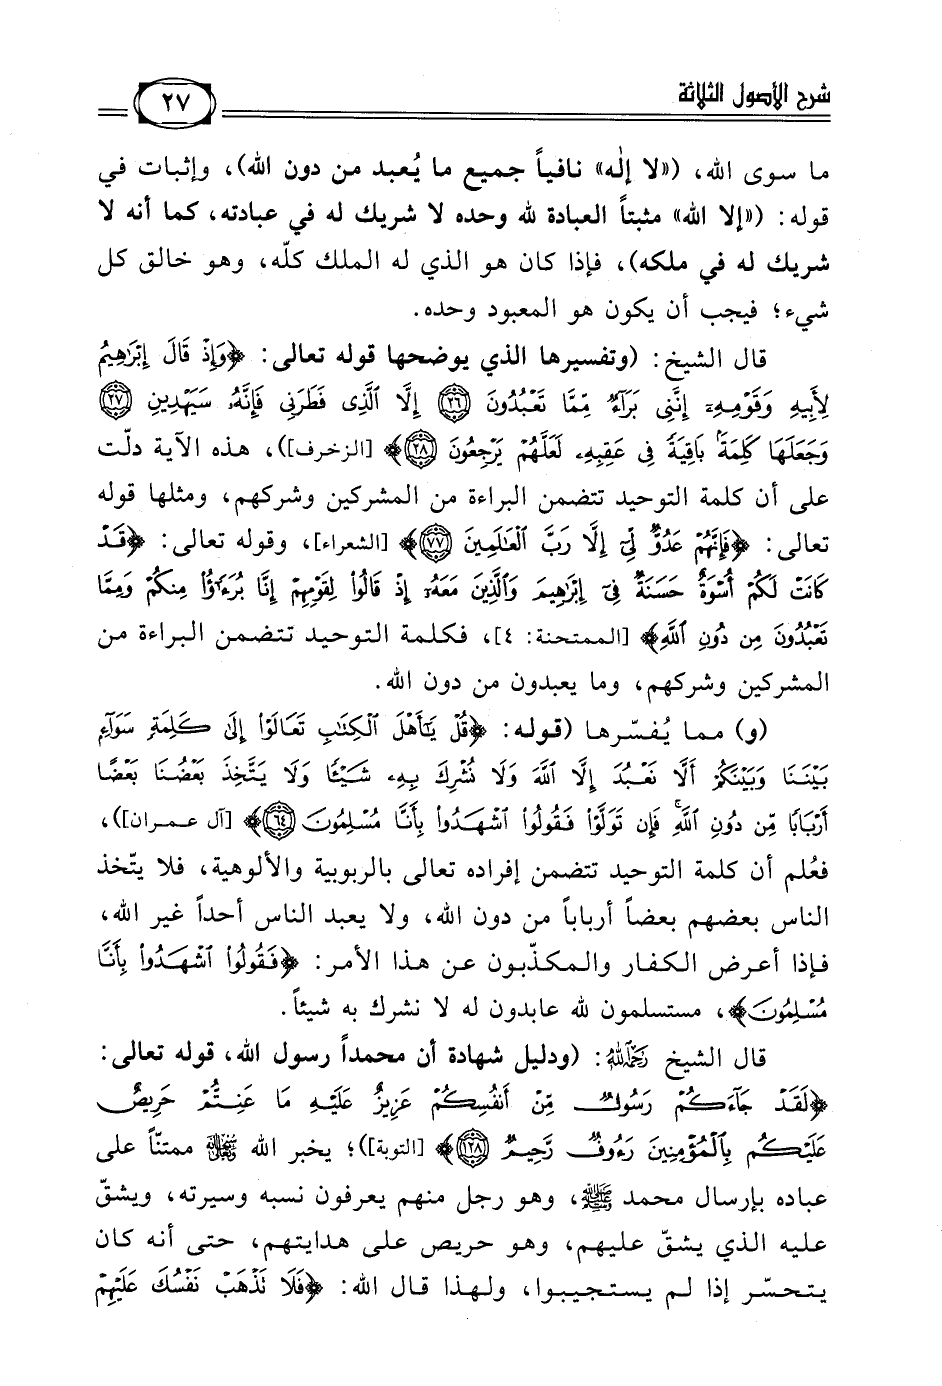 شرح الأصول الثلاثة
٢٧
ما سوى الله، («لا إلٰه» نافياً جميع ما يُعبد من دون الله)، وإثبات في
قوله: («إلا الله» مثبتاً العبادة لله وحده لا شريك له في عبادته، كما أنه لا
شريك له في ملكه)، فإذا كان هو الذي له الملك كلّه، وهو خالق كل
شيء؛ فيجب أن يكون هو المعبود وحده.
قال الشيخ: (وتفسيرها الذي يوضحها قوله تعالى: ﴿وَإِذْ قَالَ إِبْرَٰهِيمُ
لِأَبِيهِ وَقَوْمِهِۦٓ إِنَّنِى بَرَآءٌ مِّمَّا تَعْبُدُونَ ٢٦ إِلَّا ٱلَّذِى فَطَرَنِى فَإِنَّهُۥ سَيَهْدِينِ ٢٧
وَجَعَلَهَا كَلِمَةًۢ بَاقِيَةً فِى عَقِبِهِۦ لَعَلَّهُمْ يَرْجِعُونَ ٢٨﴾ [الزخرف])، هذه الآية دلّت
على أن كلمة التوحيد تتضمن البراءة من المشركين وشركهم، ومثلها قوله
تعالى: ﴿فَإِنَّهُمْ عَدُوٌّ لِّىٓ إِلَّا رَبَّ ٱلْعَٰلَمِينَ ٧٧﴾ [الشعراء]، وقوله تعالى: ﴿قَدْ
كَانَتْ لَكُمْ أُسْوَةٌ حَسَنَةٌ فِىٓ إِبْرَٰهِيمَ وَٱلَّذِينَ مَعَهُۥٓ إِذْ قَالُوا۟ لِقَوْمِهِمْ إِنَّا بُرَءَٰٓؤُا۟ مِنكُمْ وَمِمَّا
تَعْبُدُونَ مِن دُونِ ٱللَّهِ﴾ [الممتحنة: ٤]، فكلمة التوحيد تتضمن البراءة من
المشركين وشركهم، وما يعبدون من دون الله.
(و) مما يُفسّرها (قوله: ﴿قُلْ يَٰٓأَهْلَ ٱلْكِتَٰبِ تَعَالَوْا۟ إِلَىٰ كَلِمَةٍ سَوَآءٍۭ
بَيْنَنَا وَبَيْنَكُمْ أَلَّا نَعْبُدَ إِلَّا ٱللَّهَ وَلَا نُشْرِكَ بِهِۦ شَيْـًٔا وَلَا يَتَّخِذَ بَعْضُنَا بَعْضًا
أَرْبَابًا مِّن دُونِ ٱللَّهِ ۚ فَإِن تَوَلَّوْا۟ فَقُولُوا۟ ٱشْهَدُوا۟ بِأَنَّا مُسْلِمُونَ ٦٤﴾ [آل عمران])،
فعُلم أن كلمة التوحيد تتضمن إفراده تعالى بالربوبية والألوهية، فلا يتّخذ
الناس بعضهم بعضاً أرباباً من دون الله، ولا يعبد الناس أحداً غير الله،
فإذا أعرض الكفار والمكذّبون عن هذا الأمر: ﴿فَقُولُوا۟ ٱشْهَدُوا۟ بِأَنَّا
مُسْلِمُونَ﴾، مستسلمون لله عابدون له لا نشرك به شيئاً.
قال الشيخ رحمه الله: (ودليل شهادة أن محمداً رسول الله، قوله تعالى:
﴿لَقَدْ جَآءَكُمْ رَسُولٌ مِّنْ أَنفُسِكُمْ عَزِيزٌ عَلَيْهِ مَا عَنِتُّمْ حَرِيصٌ
عَلَيْكُم بِٱلْمُؤْمِنِينَ رَءُوفٌ رَّحِيمٌ ١٢٨﴾ [التوبة])؛ يخبر الله ممتنّاً على
عباده بإرسال محمد ﷺ، وهو رجل منهم يعرفون نسبه وسيرته، ويشقّ
عليه الذي يشقّ عليهم، وهو حريص على هدايتهم، حتى أنه كان
يتحسّر إذا لم يستجيبوا، ولهذا قال الله: ﴿فَلَا تَذْهَبْ نَفْسُكَ عَلَيْهِمْ